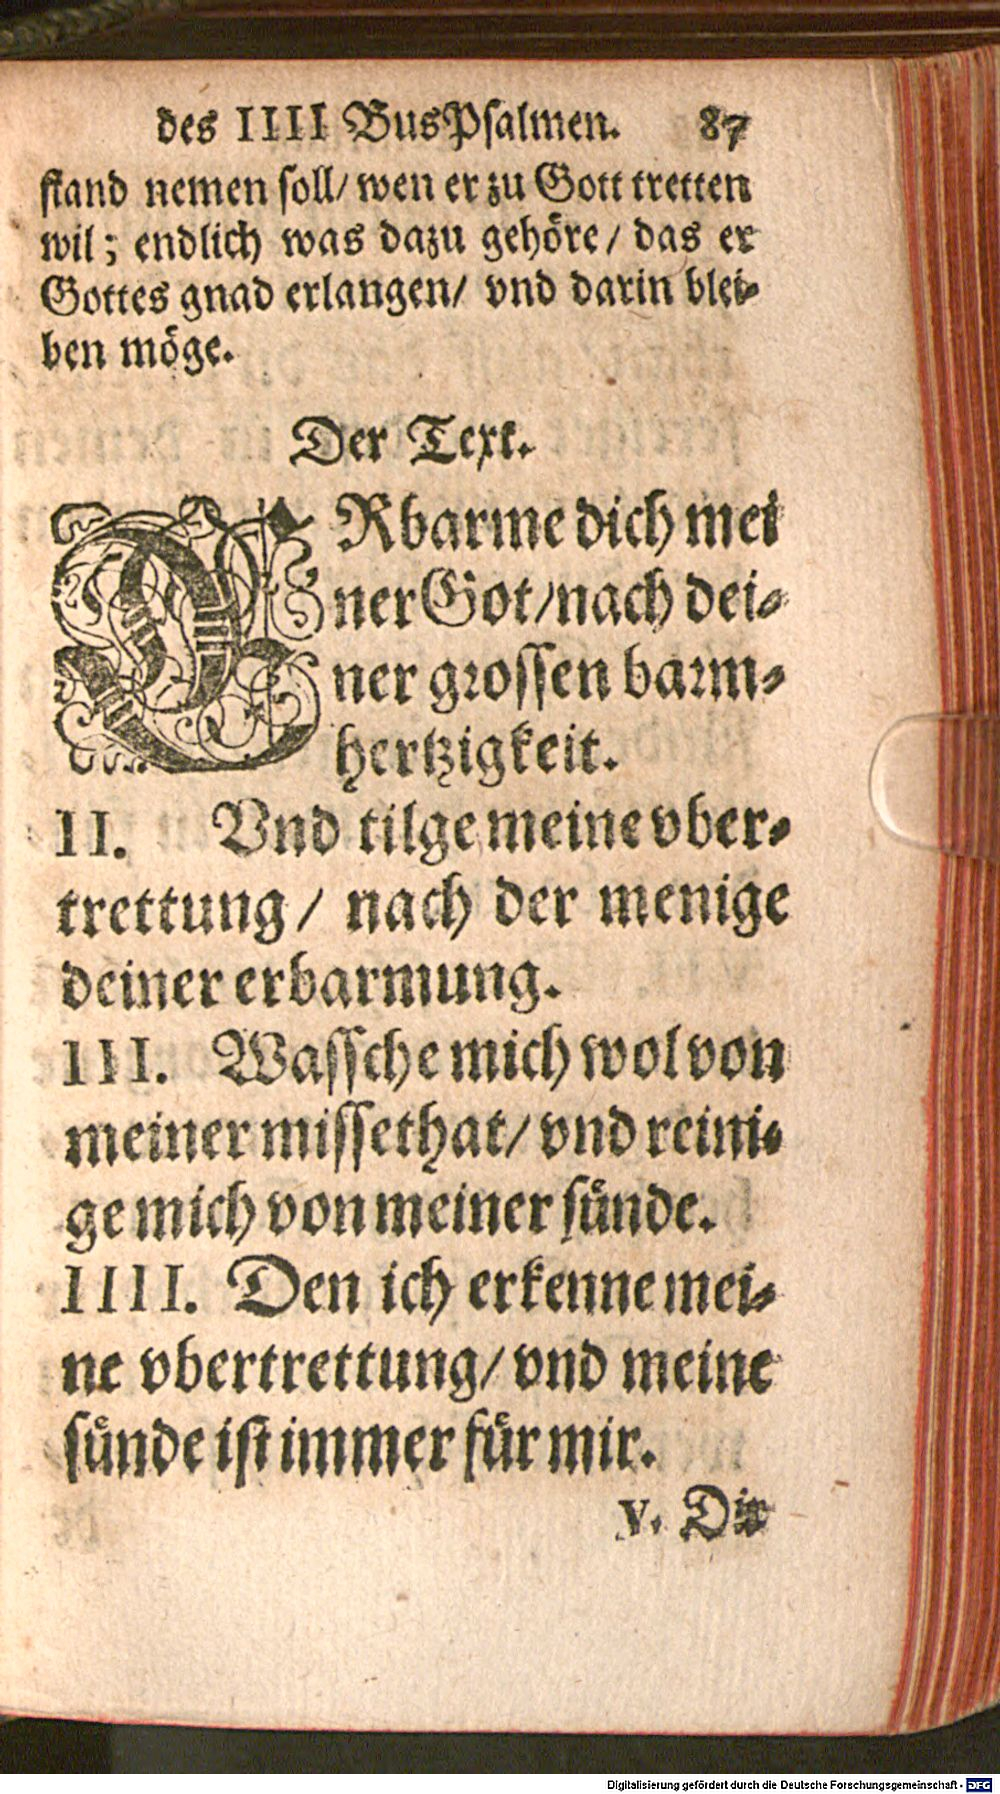 des IIII BusPsalmen. 87
stand nemen soll/ wen er zu Gott tretten
wil; endlich was dazu gehöre/ das er
Gottes gnad erlangen/ vnd darin blei-
ben möge.
Der Text.
ERbarme dich mei
ner Got/nach dei-
ner grossen barm-
hertzigkeit.
II. Vnd tilge meine vber-
trettung/ nach der menige
deiner erbarmung.
III. Wassche mich wol von
meiner missethat/ vnd reini-
ge mich von meiner sünde.
IIII. Den ich erkenne mei-
ne vbertrettung/ vnd meine
sünde ist immer für mir.
V. Dir
Digitalisierung gefördert durch die Deutsche Forschungsgemeinschaft - DFG